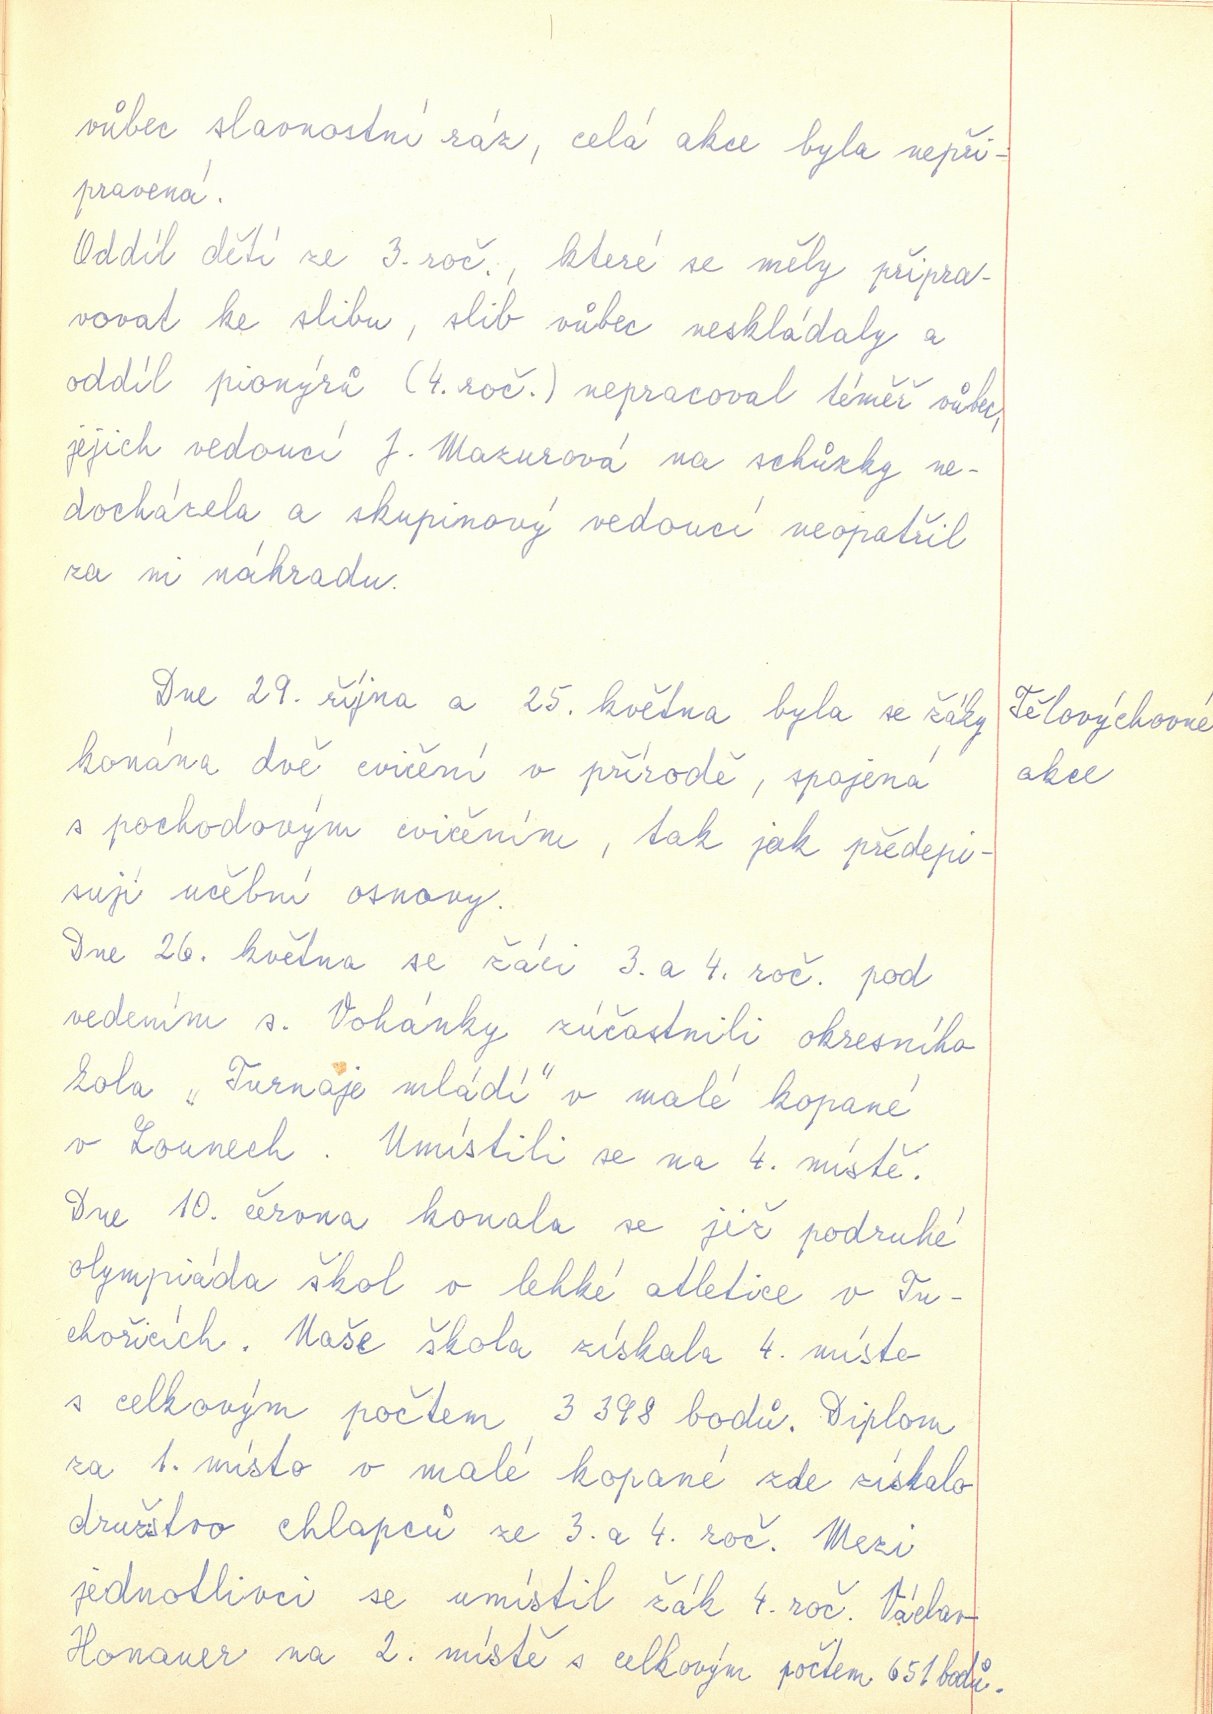 vůbec slavnostní ráz, celá akce byla nepři-
pravená.
Oddíl dětí ze 3. roč., které se měly připra-
vovat ke slibu, slib vůbec neskládaly a
oddíl pionýrů (4. roč.) nepracoval téměř vůbec,
jejich vedoucí J. Mazurová na schůzky ne-
docházela a skupinový vedoucí neopatřil
za ni náhradu.
Dne 29. října a 25. května byla se žáky
Tělovýchovné
konána dvě cvičení v přírodě, spojená
akce
s pochodovým cvičením, tak jak předepi-
sují učební osnovy.
Dne 26. května se žáci 3. a 4. roč. pod
vedením s. Vohánky zúčastnili okresního
kola „Turnaje mládí" v malé kopané
v Lounech. Umístili se na 4. místě.
Dne 10. června konala se již podruhé
olympiáda škol v lehké atletice v Tu-
chořicích. Naše škola získala 4. místo
s celkovým počtem 3 398 bodů. Diplom
za 1. místo v malé kopané zde získalo
družstvo chlapců ze 3. a 4. roč. Mezi
jednotlivci se umístil žák 4. roč. Václav
Honauer na 2. místě s celkovým počtem 651 bodů.